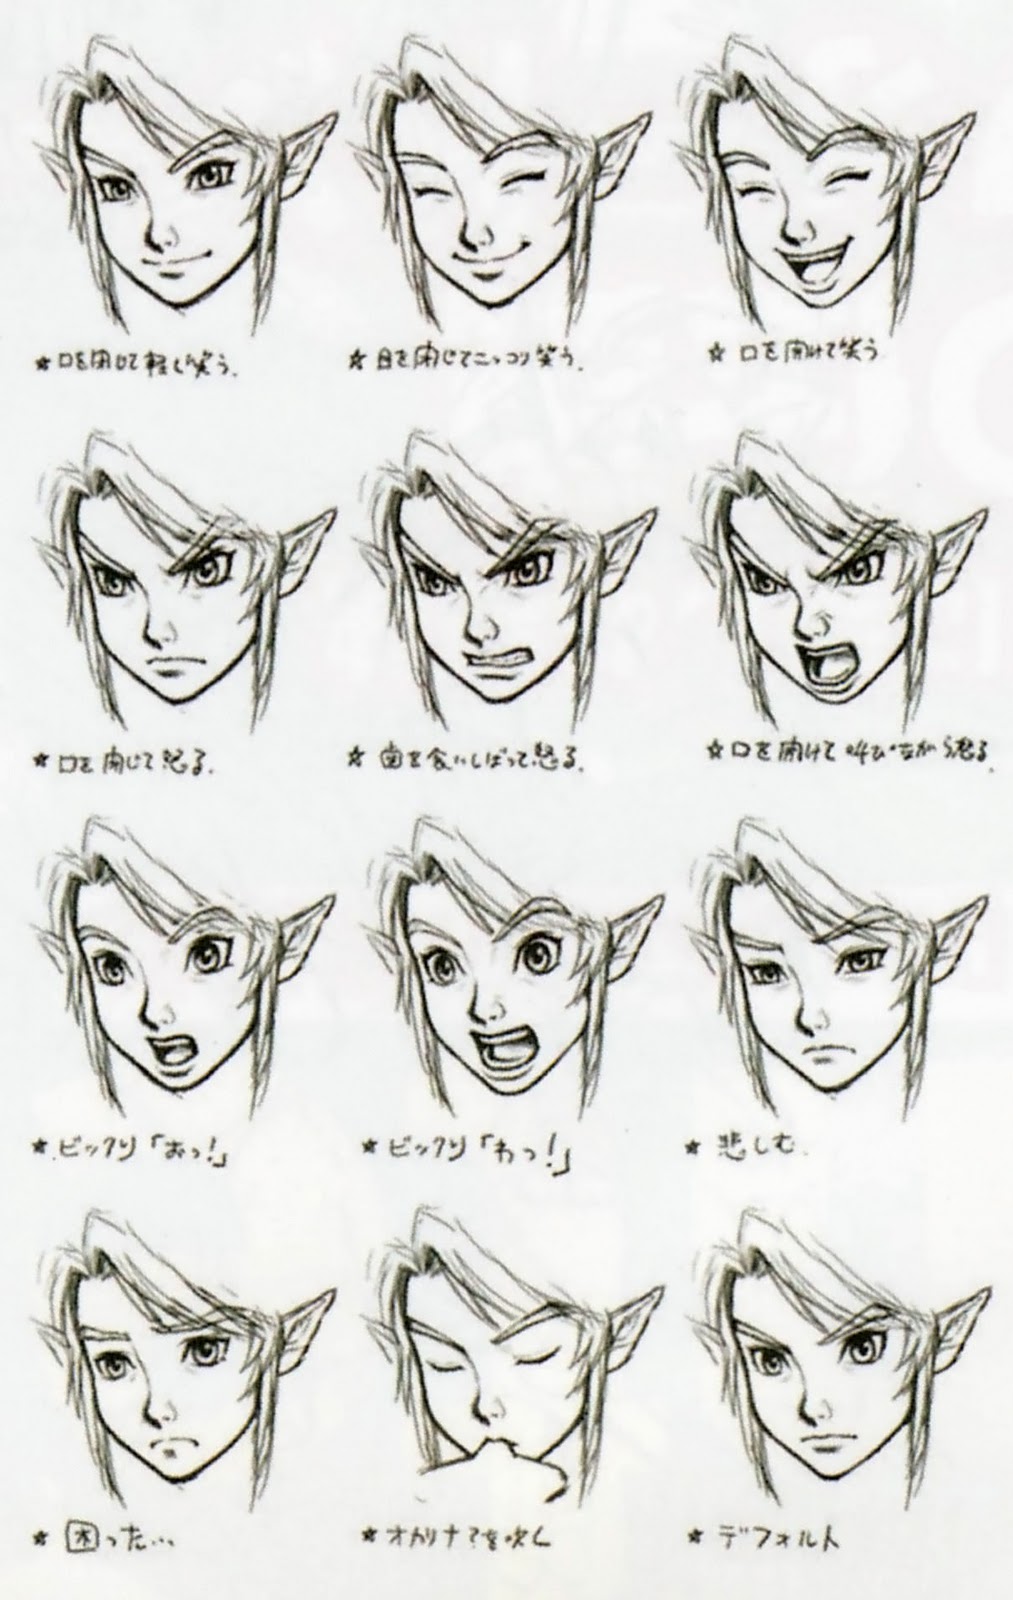 ★口を閉じて軽く笑う.
★目を閉じてニッコリ笑う.
★口を開けて笑う
★口を閉じて怒る.
★歯を食いしばって怒る.
★口を開けて叫びながら怒る.
★ビックリ「おっ!」
★ビックリ「わっ!」
★悲しむ.
★困った…
★オカリナ?を吹く
★デフォルト